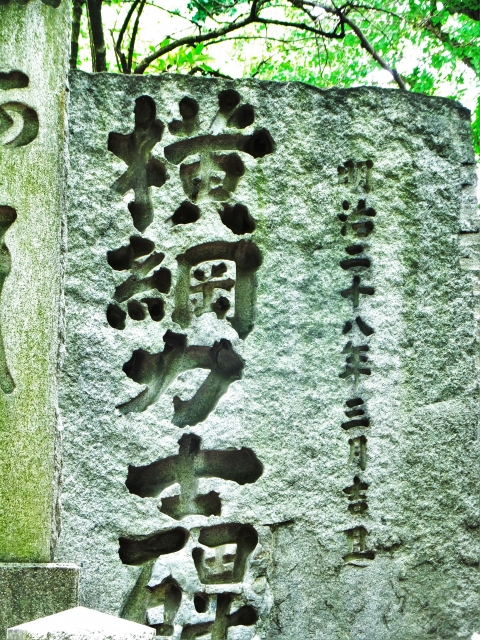 明治二十八年三月吉旦
横綱力士碑